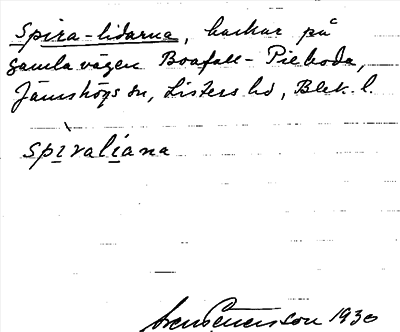 Spira-lidarna, backar på
gamla vägen Boafall - Pieboda,
Jämshögs sn, Listers hd, Blek. l.
spìralìana
Sven Benson 1930